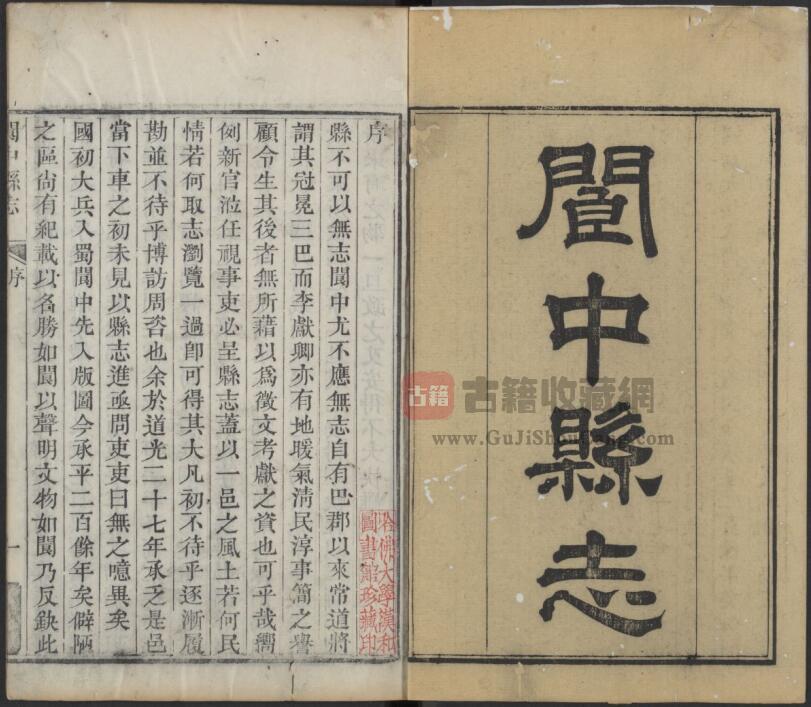 閬中縣志
序
縣不可以無志閬中尤不應無志自有巴郡以來常道將
謂其冠冕三巴而李獻卿亦有地暖氣清民淳事簡之譽
顧令生其後者無所藉以為徵文考獻之資也可乎哉嚮
例新官涖任視事吏必呈縣志蓋以一邑之風土若何民
情若何取志瀏覽一過卽可得其大凡初不待乎逐漸履
勘並不待乎博訪周咨也余於道光二十七年承乏是邑
當下車之初未見以縣志進亟問吏吏曰無之噫異矣
國初大兵入蜀閬中先入版圖今承平二百餘年矣僻陋
之區尙有紀載以名勝如閬以聲明文物如閬乃反缺此
閬中縣志
序
一
哈佛大學漢和
圖書館珍藏印
古籍
古籍收藏網
www.GuJiShouCang.com